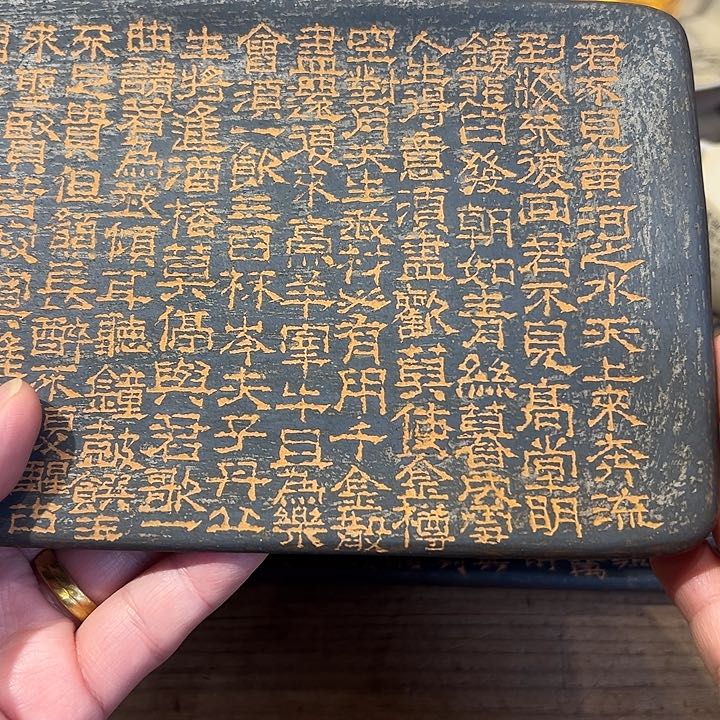 君不見黃河之水天上來奔流
到海不復回君不見高堂明
鏡悲白發朝如青絲暮成雪
人生得意須盡歡莫使金樽
空對月天生我材必有用千金散
盡還復來烹羊宰牛且為樂
會須一飲三百杯岑夫子丹丘
生將進酒杯莫停與君歌一
曲請君為我傾耳聽鐘鼓饌玉
不足貴但願長醉不復醒古
來聖賢皆寂寞惟